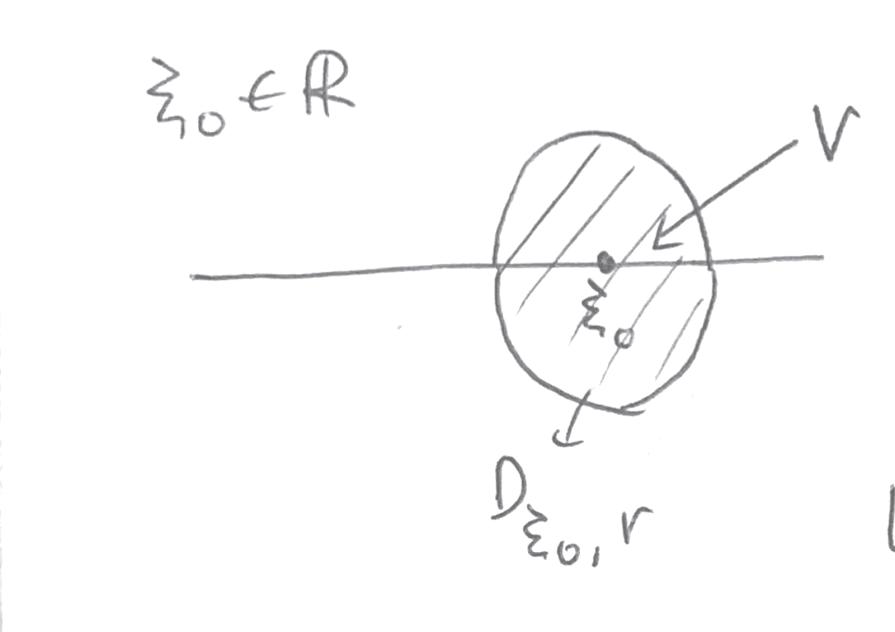 ξ₀ ∈ ℝ
V
ξ₀
D_{ξ₀, r}